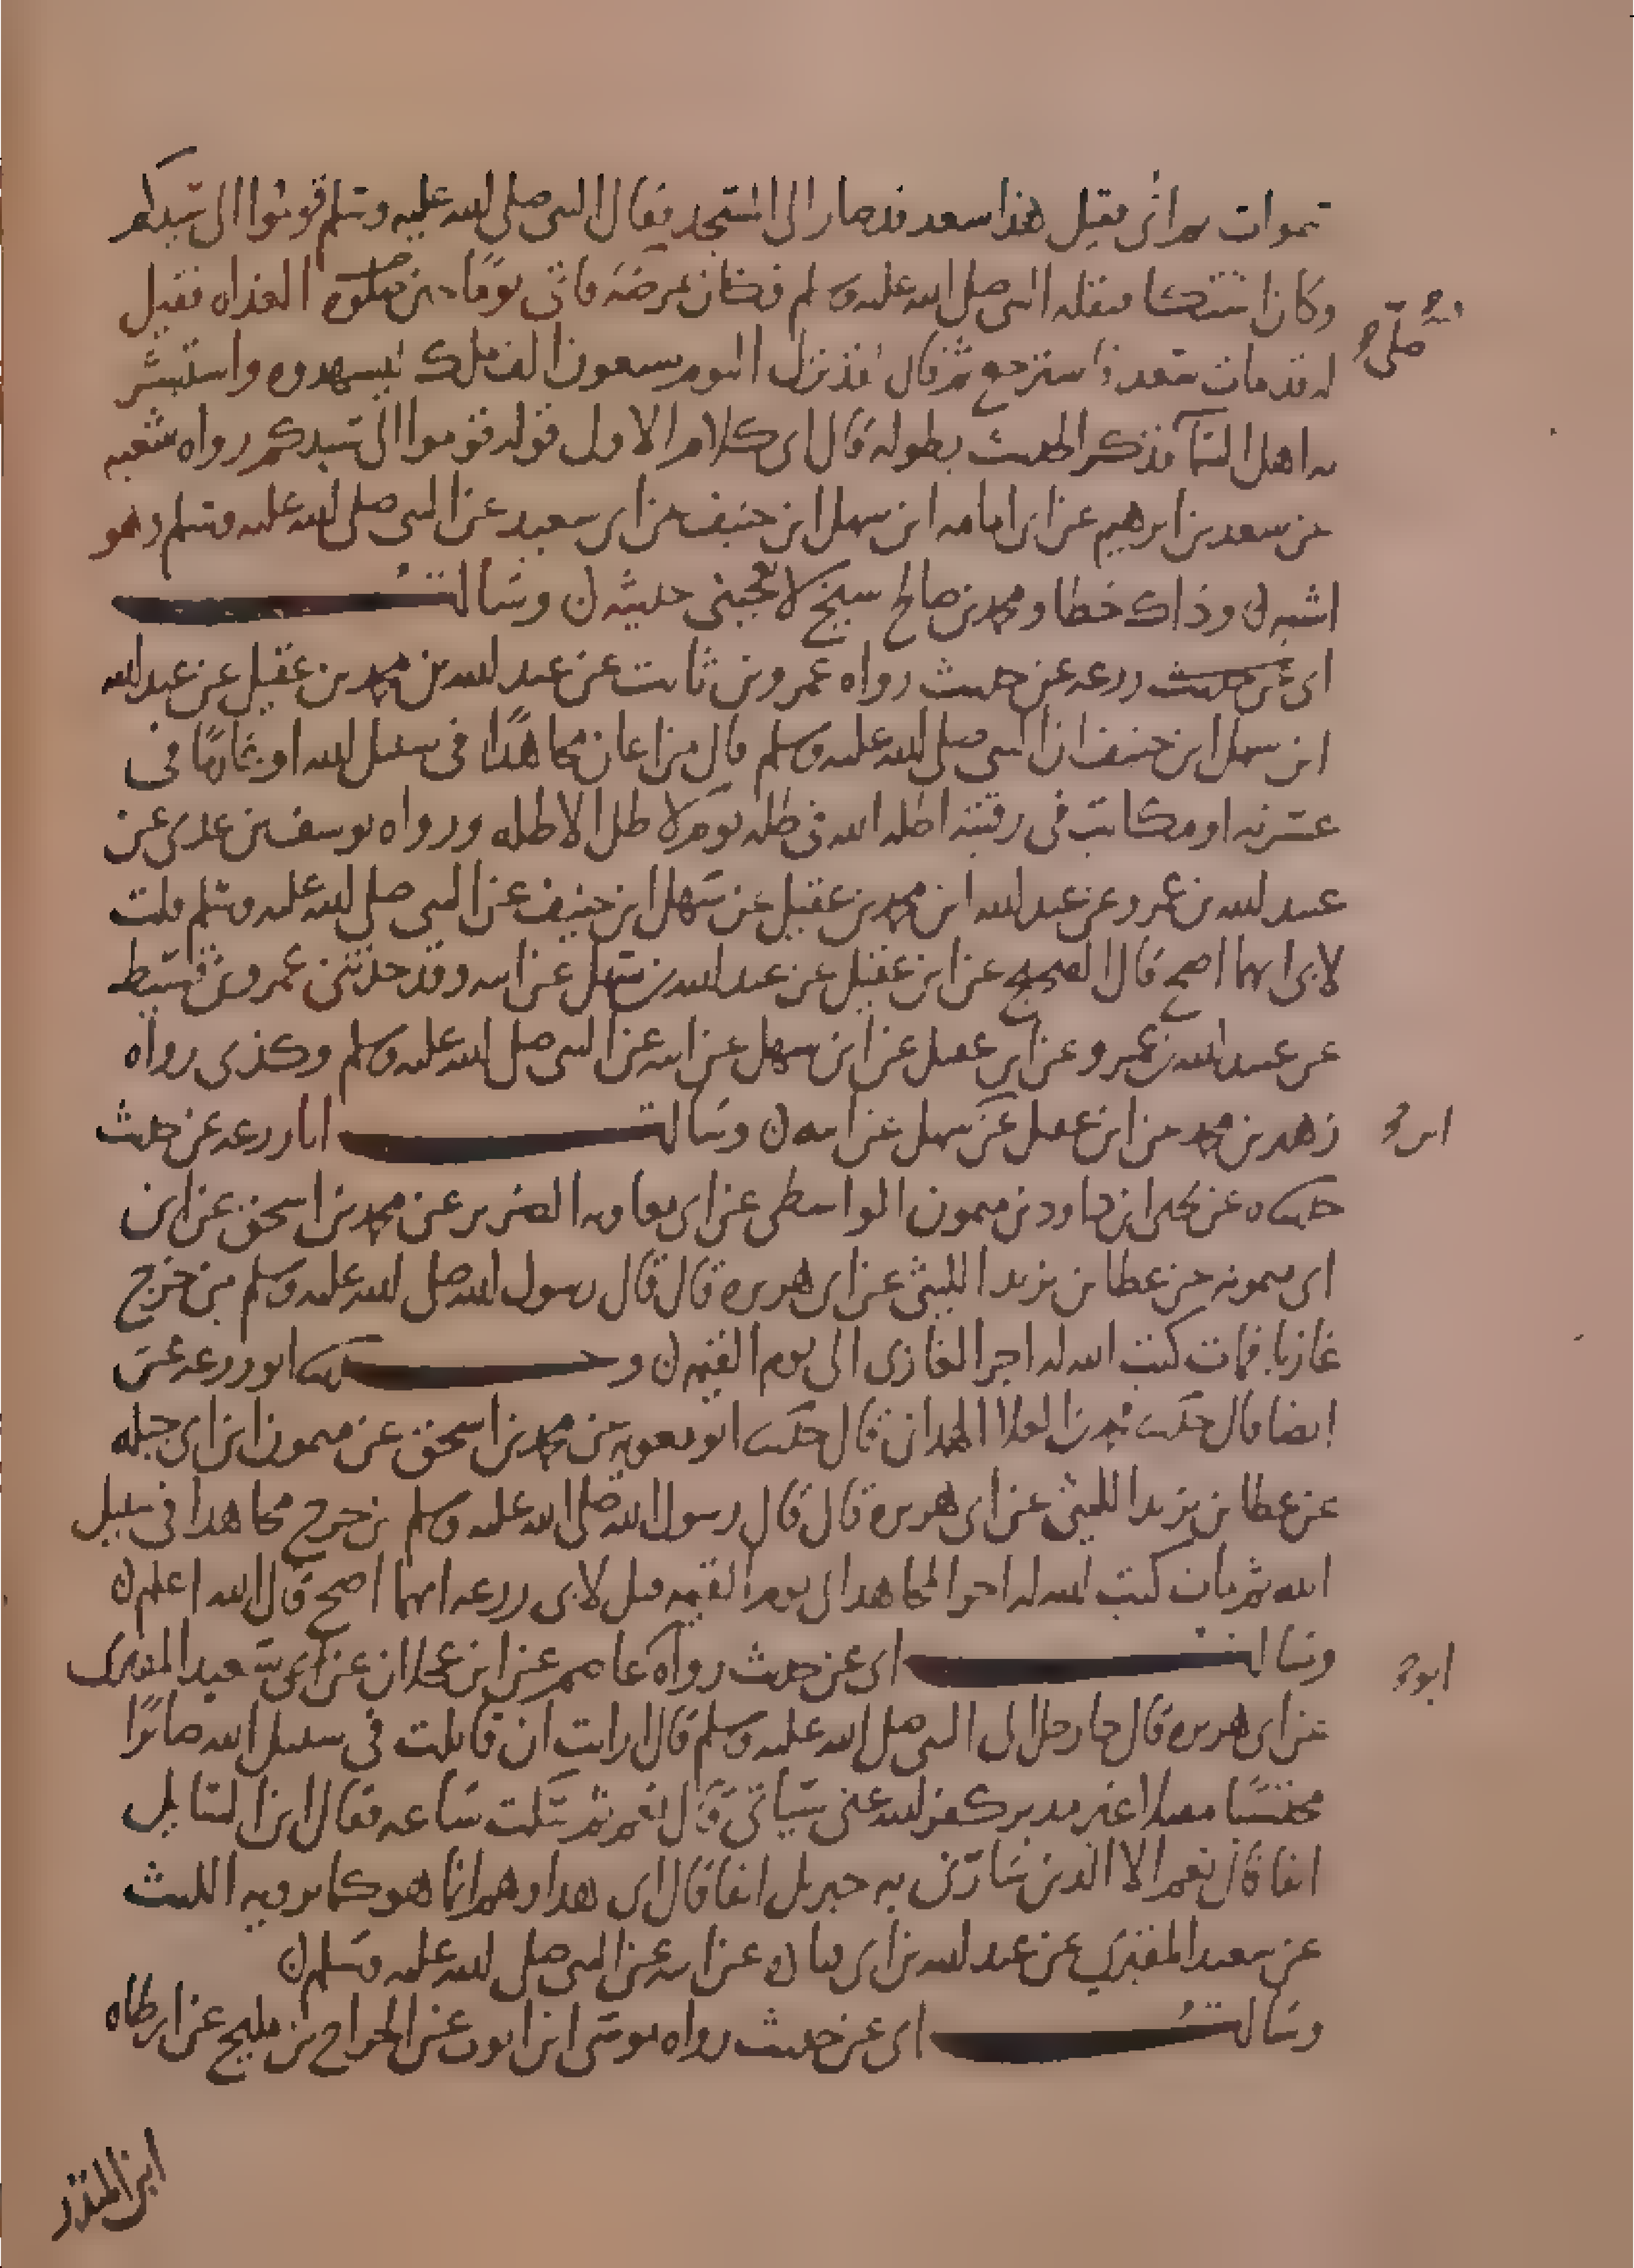 سموات ثم اتى فقيل هذا سعد قد صار الى المسجد فقال النبى صلى الله عليه وسلم قوموا الى سيدكم
وكان اشتكا فنقله النبى صلى الله عليه وسلم فكان عرضه فاتى يوما من صلوة الغداه فقيل
له قد مات سعد فاسترجع ثم قال لقد نزل اليوم سبعون الف ملك يشهدوه واستبشر
به اهل السما فذكر الحديث بطوله قال ابى كلام الاول قوله قوموا الى سيدكم رواه شعبه
عن سعد بن ابرهيم عن ابى امامه ابن سهل ابن حنيف عن ابى سعيد عن النبى صلى الله عليه وسلم وهو
اشبه ن وذاك خطا ومحمد بن صالح شيخ لا يعجبنى حديثه ن وسالت
ابى عن حديث زرعه عن حديث رواه عمرو بن ثابت عن عبد الله بن محمد بن عقيل عن عبد الله
ابن سهل ابن حنيف ان النبى صلى الله عليه وسلم قال من اعان مجاهدا فى سبيل الله او غارما فى
عسرته او مكاتب فى رقبته اظله الله فى ظله يوم لا ظل الا ظله ورواه يوسف بن عدى عن
عبيد الله بن عمرو عن عبد الله ابن محمد بن عقيل عن سهل ابن حنيف عن النبى صلى الله عليه وسلم قلت
لابى ايهما اصح قال الصحيح عن ابن عقيل عن عبد الله بن سهل عن ابيه وقد حدثنى عمرو بن قسيط
عن عبيد الله بن عمرو عن ابن عقيل عن ابن سهل عن ابيه عن النبى صلى الله عليه وسلم وكذى رواه
زهير بن محمد عن ابن عقيل عن سهل عن ابيه ن وسالت ابا زرعه عن حديث
حدثناه عن يحيى ابن داود بن ميمون الواسطى عن ابى معاويه الضرير عن محمد بن اسحق عن ابن
ابى ميمونه عن عطا بن يزيد الليثى عن ابى هريره قال قال رسول الله صلى الله عليه وسلم من خرج
غازيا فمات كتب الله له اجر الغازى الى يوم القيمه ن وحدثنا ابو زرعه عن
ايضا قال حدثنا محمد بن العلا الهمدانى قال حدثنا ابو معويه عن محمد بن اسحق عن ميمون ابن ابى جبله
عن عطا بن يزيد الليثى عن ابى هريره قال قال رسول الله صلى الله عليه وسلم من خرج مجاهدا فى سبيل
الله ثم مات كتب الله له اجر المجاهد الى يوم القيمه قيل لابى زرعه ايهما اصح قال الله اعلم ن
وسالت ابى عن حديث رواه عاصم عن ابن عجلان عن ابى سعيد المقبرى
عن ابى هريره قال جا رجل الى النبى صلى الله عليه وسلم قال ارايت ان قاتلت فى سبيل الله صابرا
محتسبا مقبلا غير مدبر كفر الله عنى سياتى قال نعم ثم سكت ساعه فقال اين السايل
انفا قال نعم الا الدين سارنى به جبريل انفا قال ابى هذا وهم انما هو كما يرويه الليث
عن سعيد المقبري عن عبد الله بن ابى قتاده عن ابيه عن النبى صلى الله عليه وسلم ن
وسالت ابى عن حديث رواه موسى ابن ايوب عن الجراح بن مليح عن ارطاه
ابن المنذر
ابن
ابو